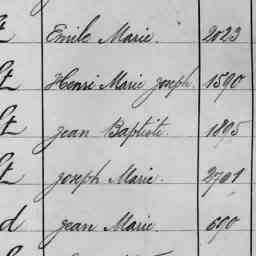 Emile Marie. 2023
Henri Marie Joseph. 1590
Jean Baptiste. 1895
Joseph Marie. 2791
d Jean Marie. 690